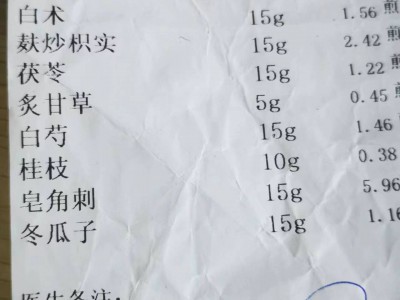 白术 15g 1.56 煎
麸炒枳实 15g 2.42 煎
茯苓 15g 1.22 煎
炙甘草 5g 0.45 煎
白芍 15g 1.46 煎
桂枝 10g 0.38
皂角刺 15g 5.96
冬瓜子 15g 1.16
医生备注: